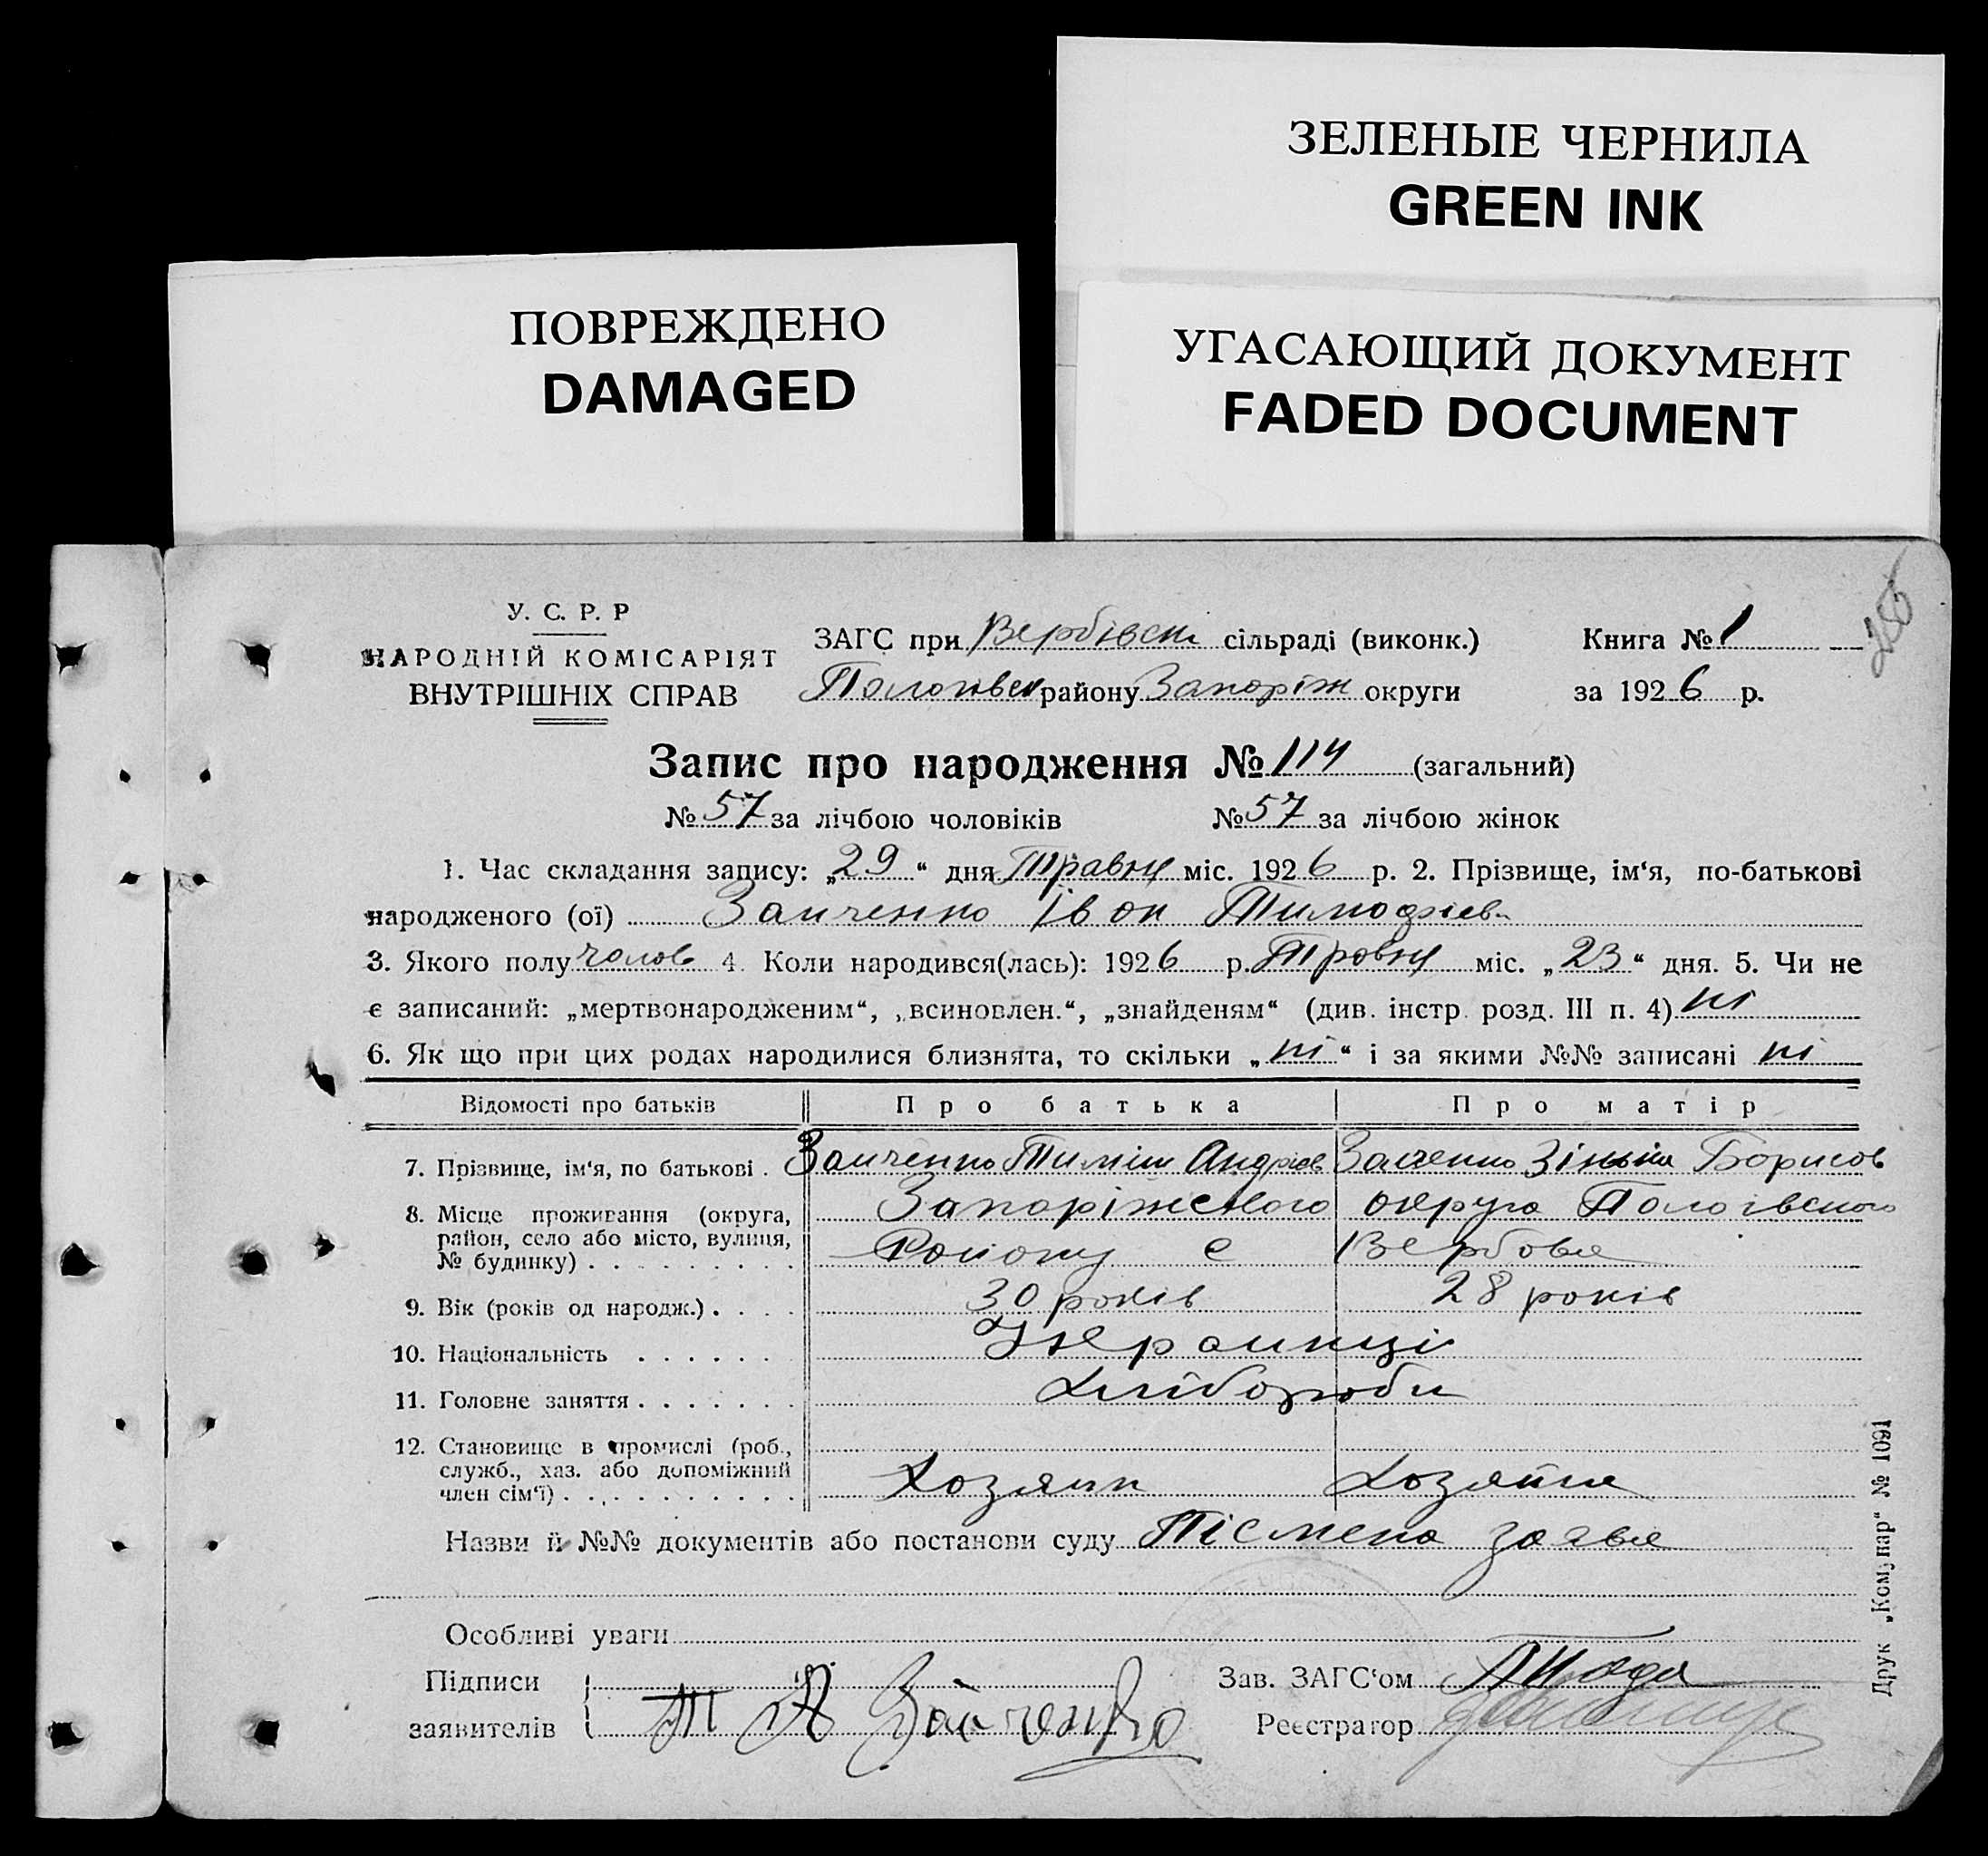 ЗЕЛЕНЫЕ ЧЕРНИЛА
GREEN INK
ПОВРЕЖДЕНО
DAMAGED
УГАСАЮЩИЙ ДОКУМЕНТ
FADED DOCUMENT
У. С. Р. Р
НАРОДНІЙ КОМІСАРІЯТ
ВНУТРІШНІХ СПРАВ
ЗАГС при Вербівск сільраді (виконк.) Книга № 1
Пологівск району Запоріж округи за 1926 р.
Запис про народження № 114 (загальний)
№ 57 за лічбою чоловіків № 57 за лічбою жінок
1. Час складання запису: „29“ дня Травня міс. 1926 р. 2. Прізвище, ім‘я, по-батькові
народженого (ої) Заиченко Іван Тимофіев
3. Якого полу чолов 4. Коли народився(лась): 1926 р. Травня міс. „23“ дня. 5. Чи не
є записаний: „мертвонародженим“, „всиновлен.“, „знайденям“ (див. інстр. розд. III п. 4) ні
6. Як що при цих родах народилися близнята, то скільки „ні“ і за якими №№ записані ні
Відомості про батьків Про батька Про матір
7. Прізвище, ім‘я, по батькові . Заиченко Тиміш Андріев Заиченко Зінька Борисов
8. Місце проживання (округа, район, село або місто, вулиця, № будинку) . . . . . . . . .
Запоріжского округа Пологівского
Району с Вербове
9. Вік (років од народж.) . . . . 30 років 28 років
10. Національність . . . . . . Украинці
11. Головне заняття . . . . . . . Хлібороби
12. Становище в промислі (роб., служб., хаз. або допоміжний член сім‘ї) . . . . . . . . . .
Хозяин Хозяйка
Назви й №№ документів або постанови суду Пісмена заява
Особливі уваги
Підписи заявителів Т А Зайченко
Зав. ЗАГС‘ом
Реєстратор
Друк „Комунар“ № 1091